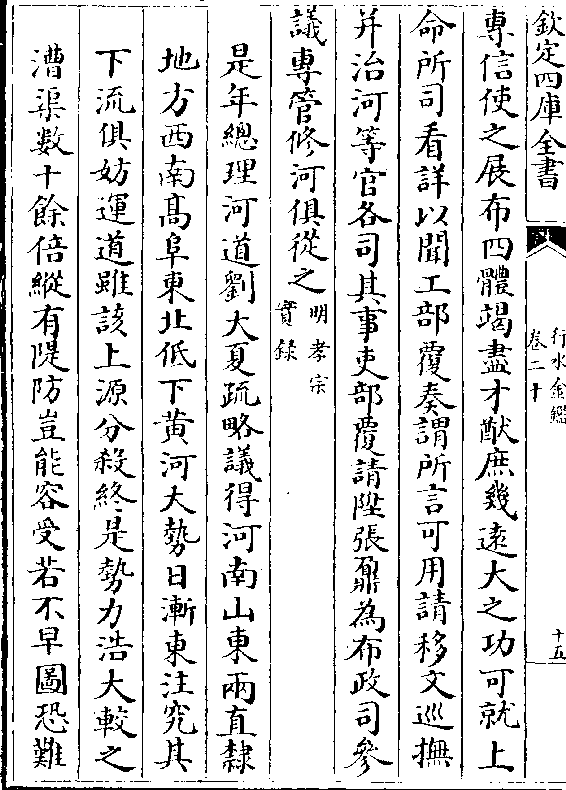 欽定四庫全書
行水金鑑
卷二十
十五
專信使之展布四體竭盡才猷庶幾遠大之功可就上
命所司看詳以聞工部覆奏謂所言可用請移文巡撫
并治河等官各司其事吏部覆請陞張鼐為布政司參
議專管修河俱從之明孝宗
實錄
是年總理河道劉大夏疏略議得河南山東兩直隸
地方西南高阜東北低下黃河大勢日漸東注究其
下流俱妨運道雖該上源分殺終是勢力浩大較之
漕渠數十餘倍縱有隄防豈能容受若不早圖恐難